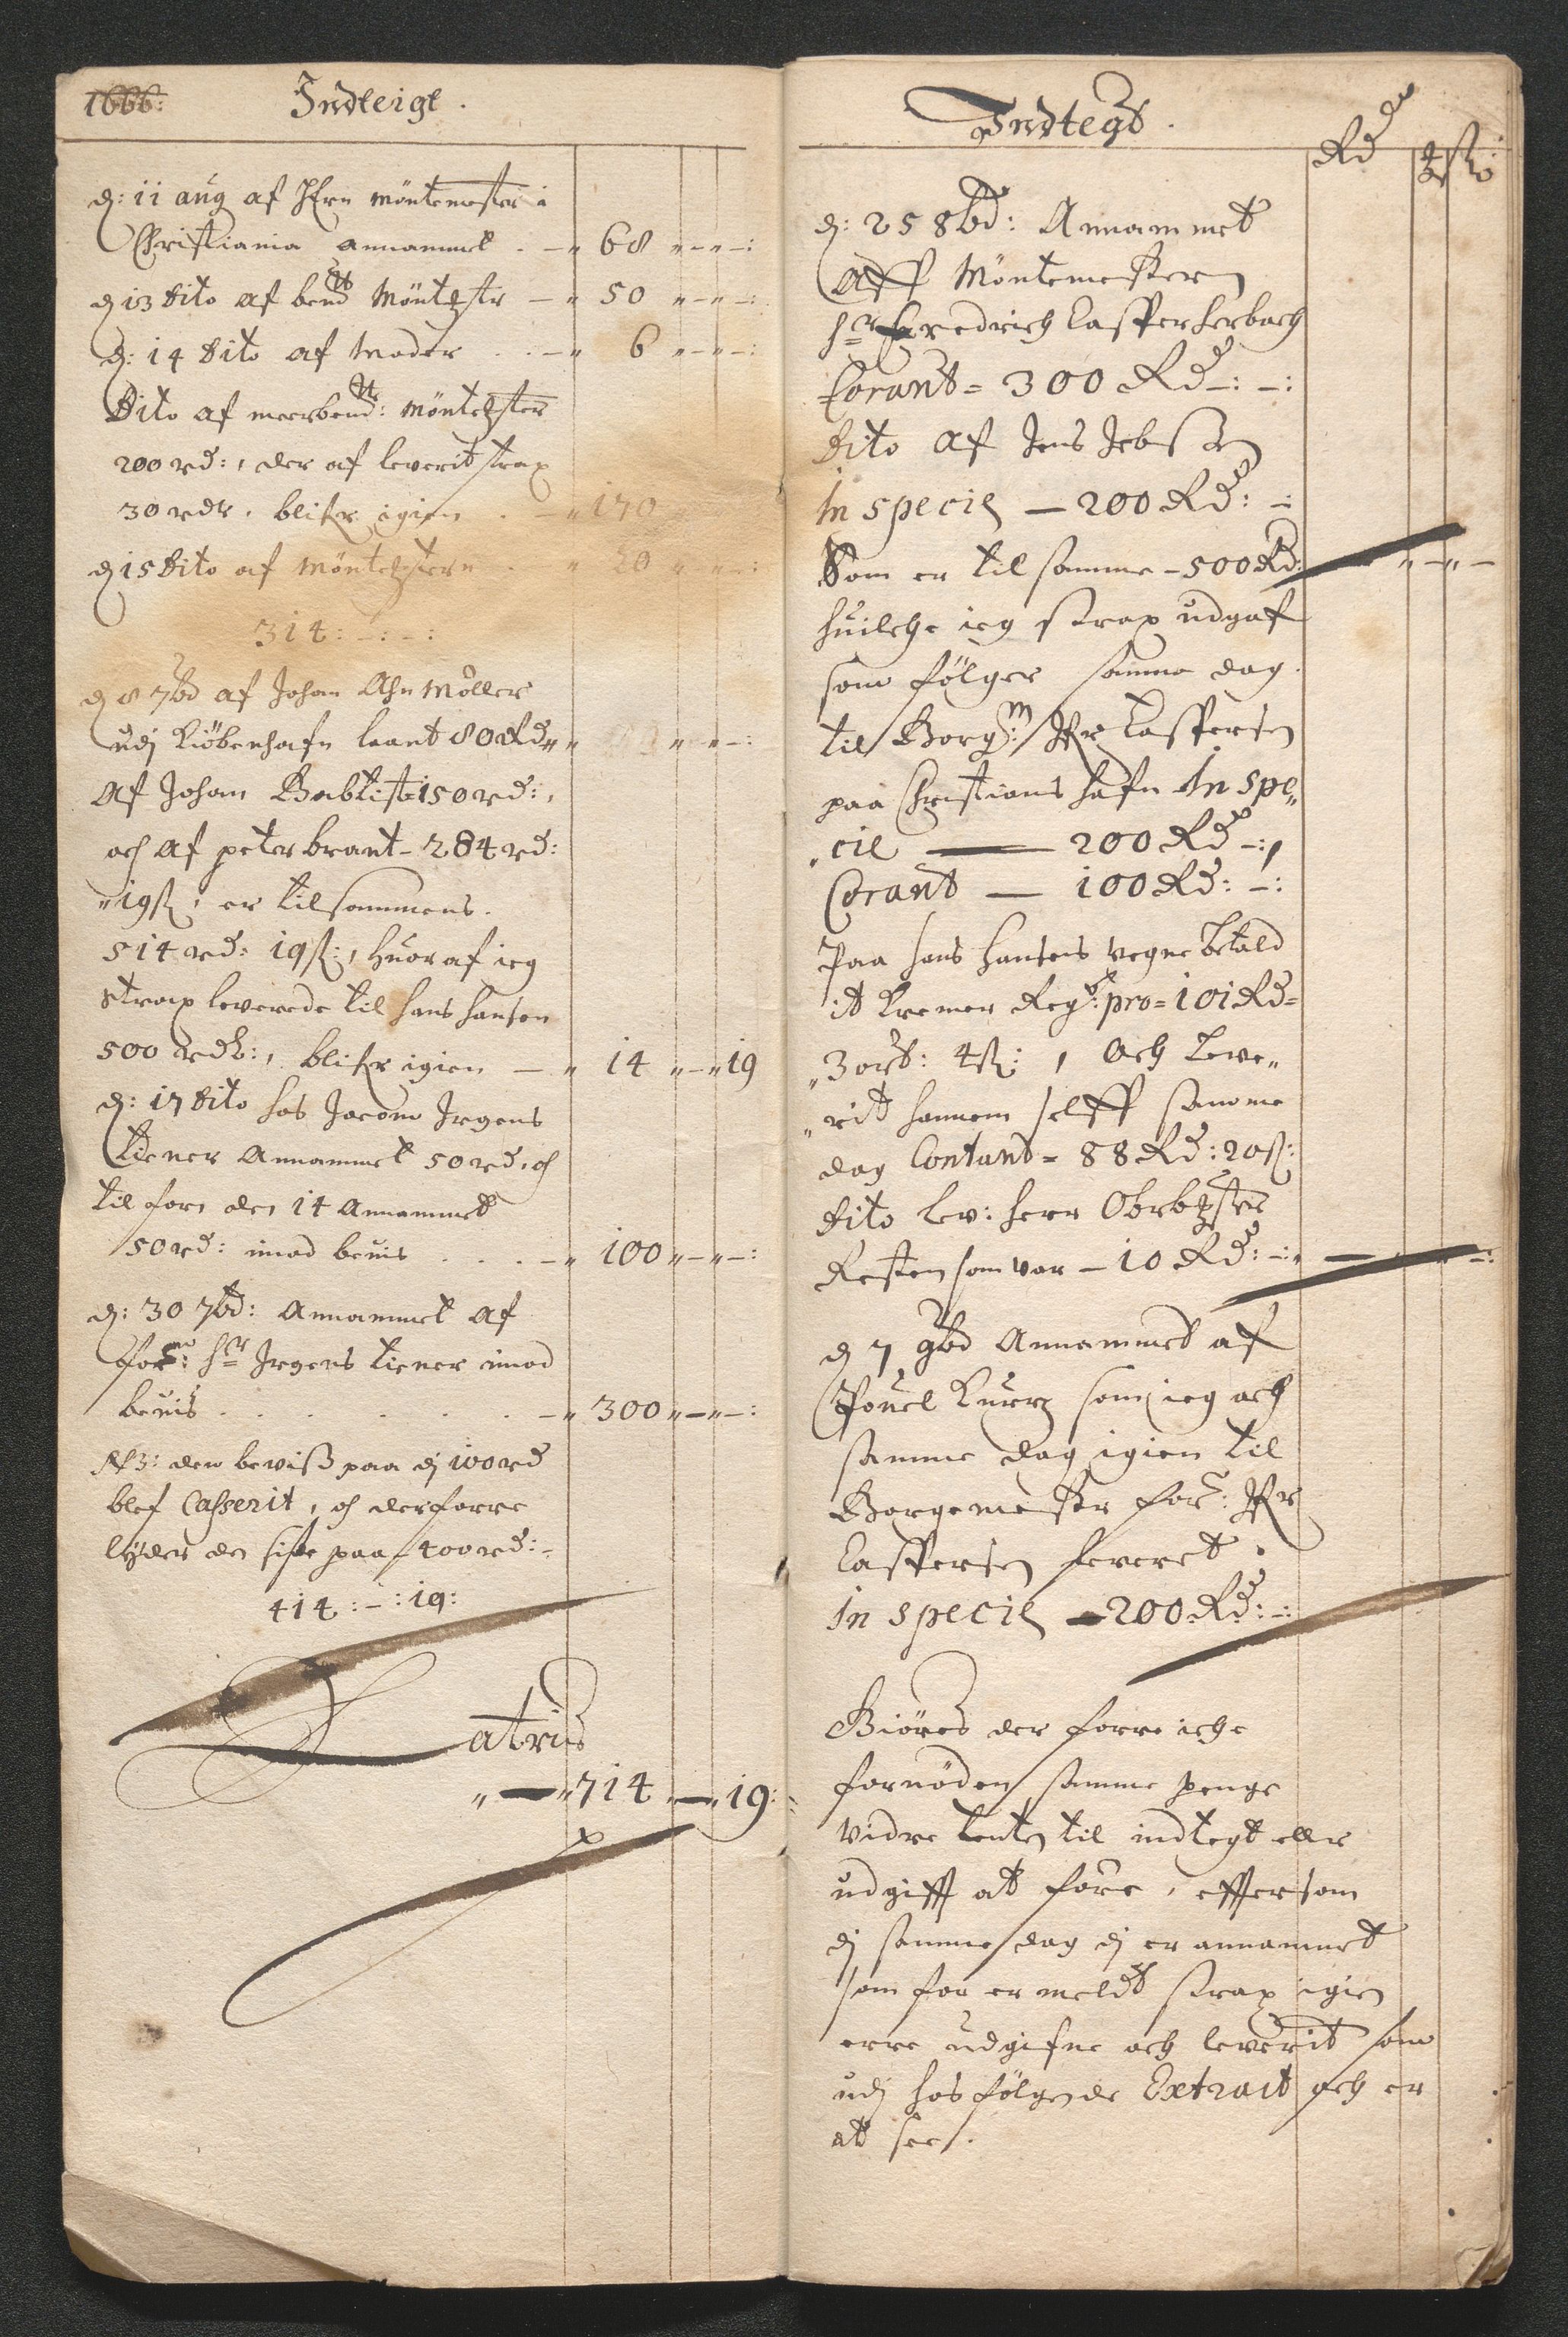 1666: Indteigt.
d: 11 aug af Hrn möntemester i
Christiania annammet . — „ 68 „—„—:
d 13 dito af bemt Möntestr — „ 50 „—„—:
d: 14 dito af Moder . . — „ 6 „—„—:
Dito af meerbemt: Möntester
200 rd:, der af leverit strax
30 rdr. blifr igien . — „ 170
d 15 dito af Möntestern . „ 20 „—„—:
314:—:—:
d 8 7bd af Johan Møller
udj Kiöbenhafn laant 80 Rd „ „—„—:
Af Johan Babtist 150 rd:,
och af peter brant - 284 rd:
„19ß, er tilsammens.
514 rd: 19ß:, huoraf ieg
strax leverede til hans hansen
500 rdr:, blifr igien — „ 14 „—„19
d: 17 dito hos Jacom Irgens
tiener Annammet 50 rd, och
til forn den 14 Annammet
50 rd: imod beuis . . . — „ 100 „—„—:
d: 30 7bd: Annammet af
for: Hr Irgens tiener imod
beuis . . . . . . . — „ 300 „—„—:
NB: den beviss paa dj 100 rd
blef Casserit, och derforre
lyder den siste paa - 400 rd:-
414:—:19:
Latris
„—„714„—„19:
Indtegt.
Rd ß
d: 25 8bd: Annammet
Aff Möntemesteren
Hr Fredrich Casper Herbach
Corant = 300 Rd —:—:
dito af Jens Jebsen
In specie — 200 Rd:—:
Som er tilsamme - 500 Rd: „—„—
huilche ieg strax udgaf
som fölger samme dag.
til Borgm: Casspersen
paa Christians hafn In spe„
„cie — 200 Rd —:,
Corant — 100 Rd:—:
Paa hans hansens vegne betald
it Kremer Regn: pro = 101 Rd=
„3 ort: 4ß:, och leve„
„rit hannem selff samme
dag Contant = 88 Rd: 20ß:
dito lev: herr
Resten som var — 10 Rd:—: „—„—:
d 7 9bd Annammet af
Pouel Kurtz som ieg och
samme dag igien til
Borgemester for:
Casspersen leveret.
In specie — 200 Rd:—:
Giöres der forre iche
fornöden samme penge
vidre enten til indtegt eller
udgifft at före, effter som
dj samme dag dj er annammet
som for er meldt strax igien
erre udgifne och leverit som
udj hosfölgende Extract och er
at see.